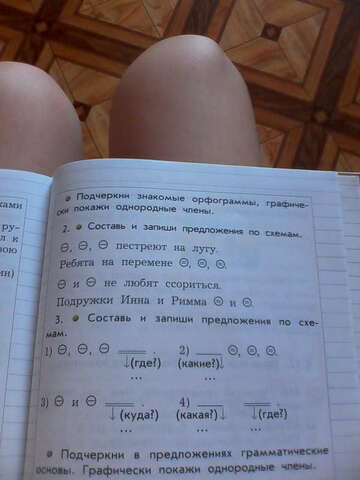 ками
ру-
л к
вою
ин)
● Подчеркни знакомые орфограммы, графиче-
ски покажи однородные члены.
2. ● Составь и запиши предложения по схемам.
⊖, ⊖, ⊖ пестреют на лугу.
Ребята на перемене ⊜, ⊜, ⊜.
⊖ и ⊖ не любят ссориться.
Подружки Инна и Римма ⊜ и ⊜.
3. ● Составь и запиши предложения по схе-
мам.
1) ⊖, ⊖, ⊖ ____ . 2) ____ ⊜, ⊜, ⊜.
↓(где?) (какие?)↓
... ...
3) ⊖ и ⊖ ____ . 4) ____ ____ .
↓(куда?) (какая?)↓ ↓(где?)
... ... ...
● Подчеркни в предложениях грамматические
основы. Графически покажи однородные члены.